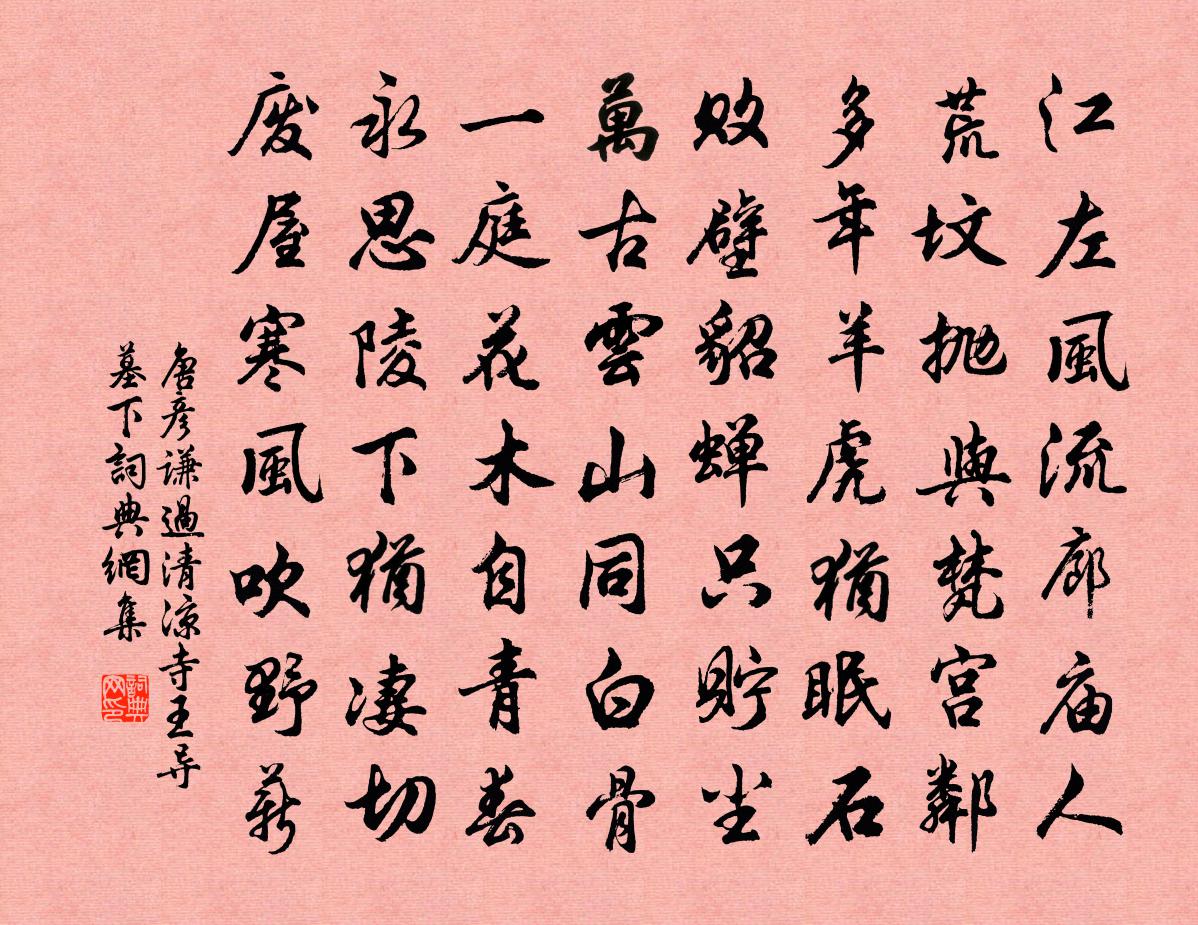 江左風流廊庙人
荒坟抛與梵宫鄰
多年羊虎猶眠石
败壁貂蝉只贮尘
萬古雲山同白骨
一庭花木自青春
永思陵下猶凄切
废屋寒風吹野薪
唐彦谦過清凉寺王导
墓下詞典網集
詞典
网印